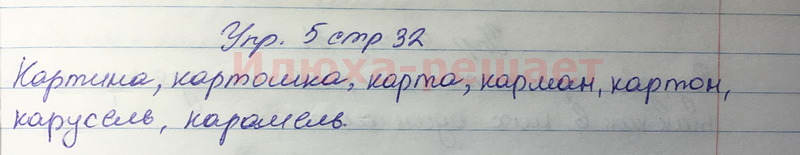 Упр. 5 стр 32
Илюха-решает
Картина, картошка, карта, карман, картон,
карусель, карамель.